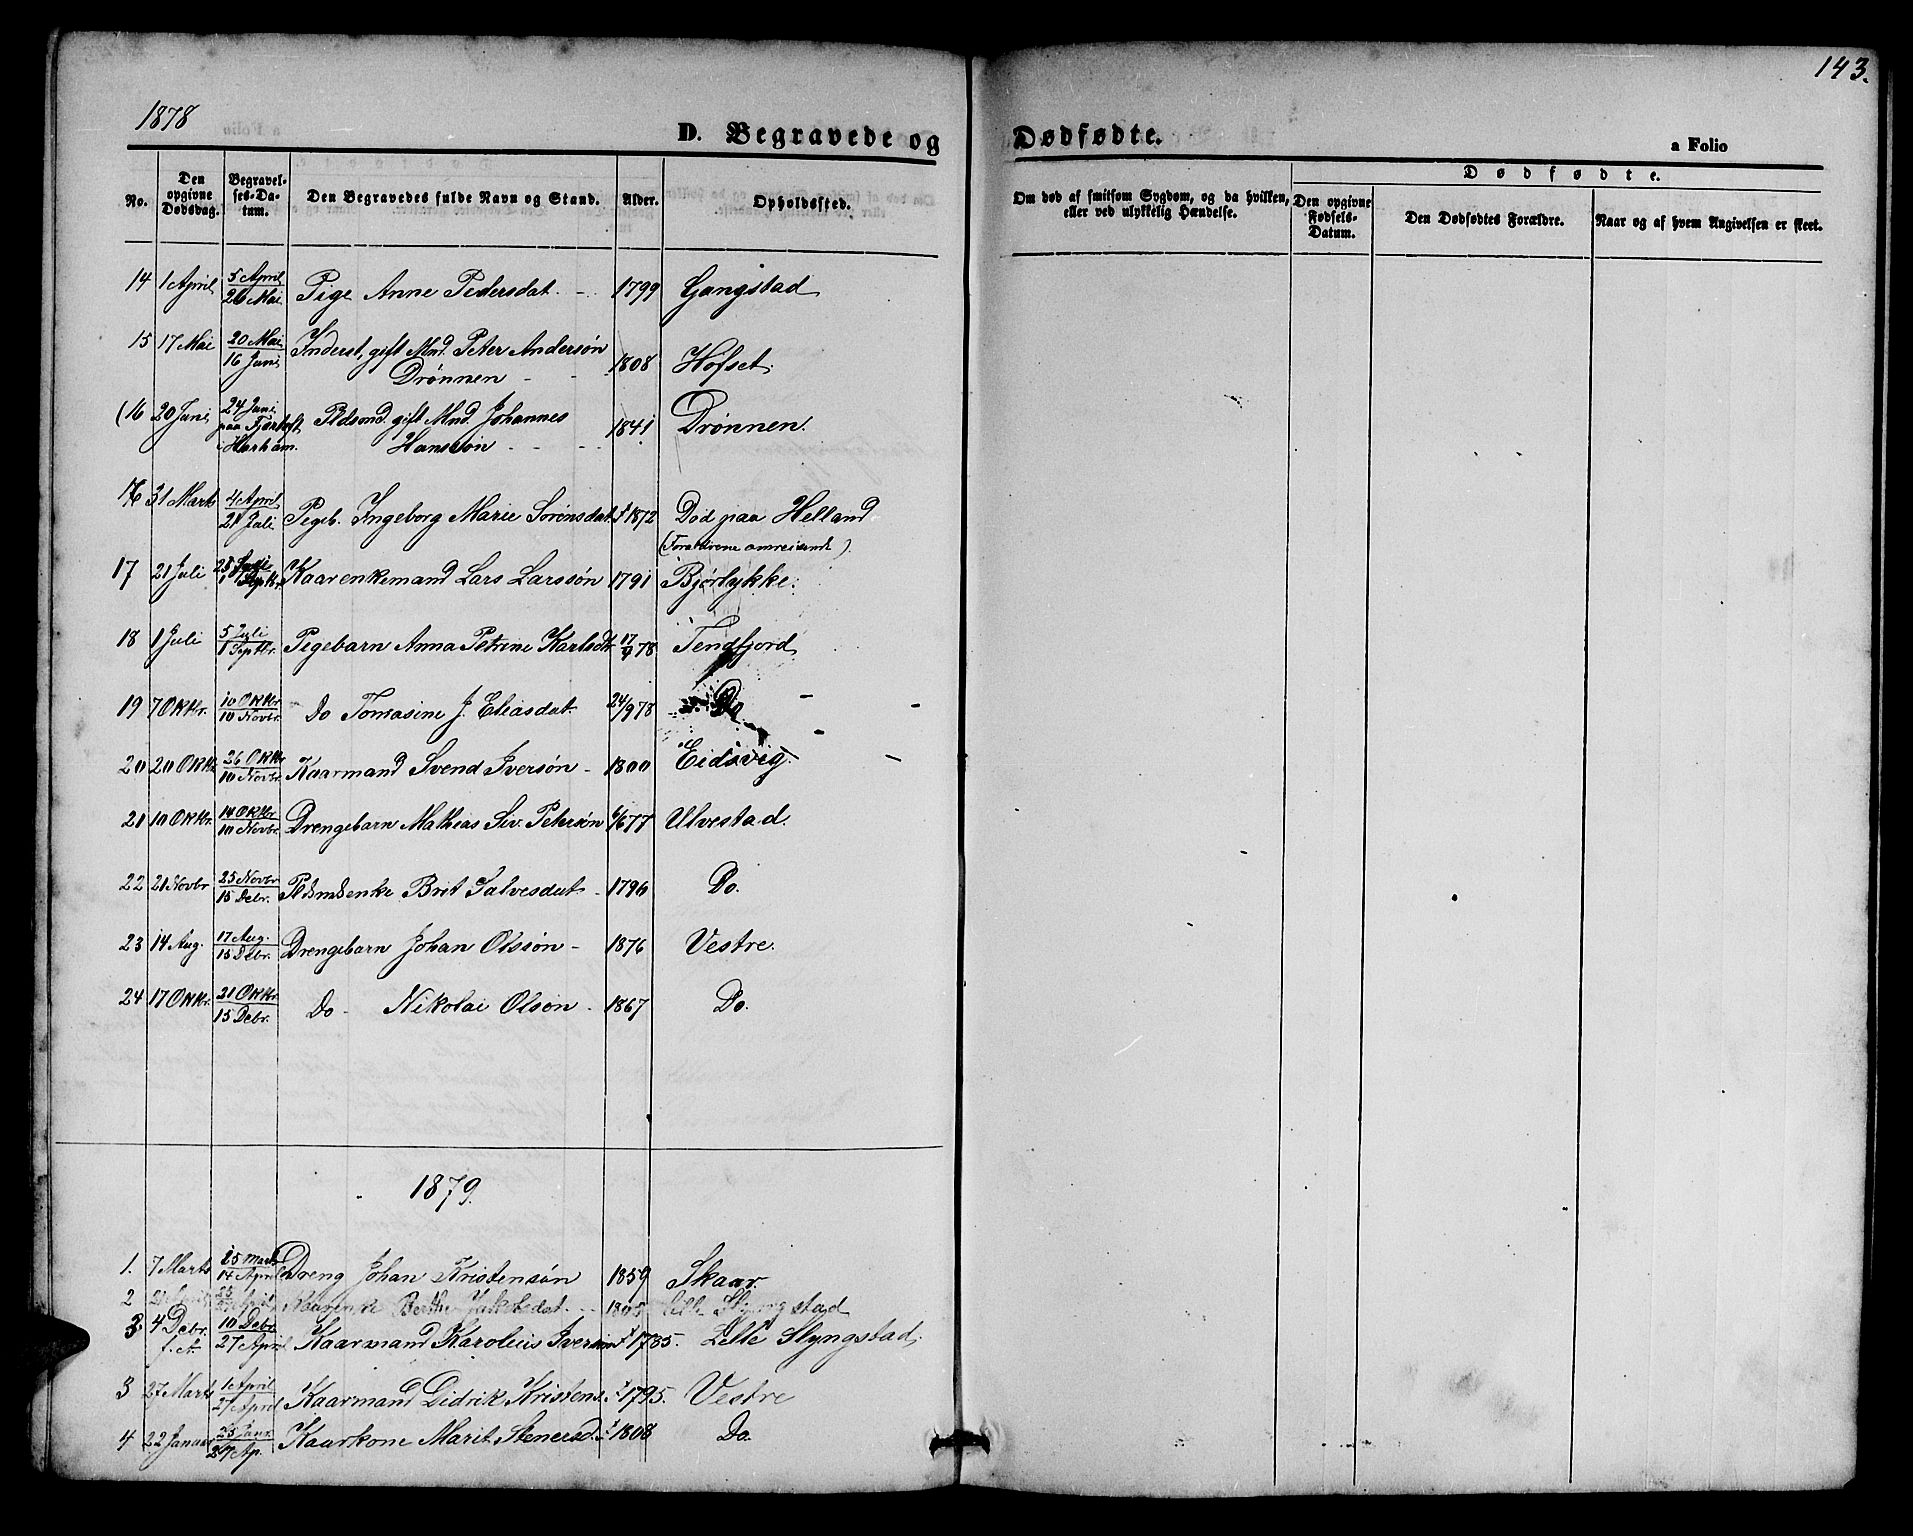 143.
1878
D. Begravede og Dødfødte.
a Folio
No.
Den opgivne Dødsdag.
Begravelses-Datum.
Den Begravedes fulde Navn og Stand.
Alder.
Opholdssted.
Om død af smitsom Sygdom, og da hvilken, eller ved ulykkelig Hændelse.
Dødfødte.
Den opgivne Fødsels-Datum.
Den Dødfødtes Forældre.
Naar og af hvem Angivelsen er skeet.
14 1 April 5 April 26 Mai Pige Anne Pedersdat. 1799 Gangstad
15 17 Mai 20 Mai 16 Juni Inderst, gift Mnd. Peter Andersøn
Drønnen 1808 Hofset
(16 20 Juni 24 Juni paa Fjørtoft i Harham. Pldsmd. gift Mnd. Johannes
Hanssøn 1841 Drønnen.
16 31 Marts 4 April 21 Juli Pigeb. Ingeborg Marie Sørensdat. f 1872 Død paa Helland
(Forældrene omreisende).
17 21 Juli 25 Juli 1 Septbr. Kaarenkemand Lars Larssøn 1791 Bjørlykke.
18 1 Juli 5 Juli 1 Septbr. Pigebarn Anna Petrine Karlsdtr 17/4 78 Tendfjord
19 7 Oktbr. 10 Oktbr 10 Novbr. Do Tomasine J. Eliasdat. 24/9 78 Do
20 20 Oktbr 26 Oktbr 10 Novbr. Kaarmand Svend Iversøn 1800 Eidsvig.
21 10 Oktbr. 14 Oktbr 10 Novbr. Drengebarn Mathias Siv. Petersøn 6/6 77 Ulvestad.
22 21 Novbr 25 Novbr 15 Debr. Pldsmdsenke Brit Salvesdat 1796 Do.
23 14 Aug. 17 Aug. 15 Debr. Drengebarn Johan Olssøn 1876 Vestre.
24 17 Oktbr. 21 Oktbr. 15 Debr. Do Nikolai Olsøn 1867 Do.
1879.
1. 7 Marts 15 Marts 14 April Dreng Johan Kristensøn 1859 Skaar.
2 Kaarenke Berthe Jakobsdat. 1805 Lille Slyngstad
3 4 Debr. f. A. 10 Debr 27 April Kaarmand Karolius Iversøn f 1785. Lille Slyngstad.
3 27 Marts 1 April 27 April Kaarmand Didrik Kristens. f 1795. Vestre
4 22 Januar 25 Janr. 27 Ap. Kaarkone Marit Stenersd. f 1808 Do.